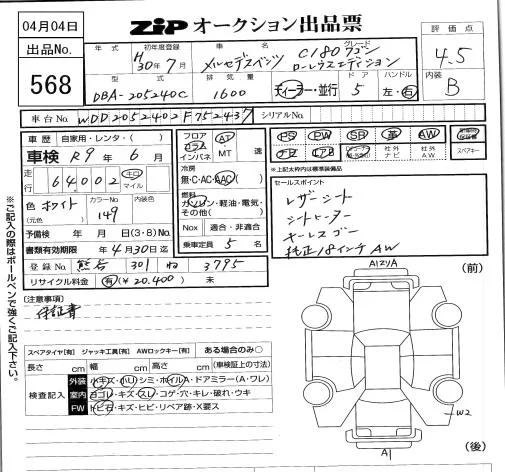 04月04日
ZiP オークション出品票
評価点
4.5
出品No.
568
年式 初年度登録 車名 グレード
H30年7月 メルセデスベンツ C180ワゴン ローレウスエディション
型式 排気量 ドア ハンドル
DBA-205240C 1600 ディーラー・並行 5 左・右
内装
B
車台No. WDD2052402F752437 シリアルNo.
車歴 自家用・レンタ・( )
車検 R9年6月
走行 64,002 キロ マイル
色 ホワイト (元色) カラーNo. 149 内装色
予備検 年 月 日(3・8)No.
書類有効期限 年4月30日迄
登録No. 熊谷 301 ね 3795
リサイクル料金 有(¥20,400) 未
フロア コラム インパネ AT MT 速
冷房 無・C・AC・AAC
燃料 ガソリン・軽油・電気・その他( )
Nox 適合・非適合
乗車定員 5 名
PS PW SR 革 AW
ナビ エアB 社外ナビ 社外AW スペアキー
*上記太枠内は標準装備品
セールスポイント
レザーシート
シートヒーター
キーレスゴー
純正18インチAW
(注意事項)
保証書
スペアタイヤ[有] ジャッキ工具[有] AWロックキー[有] ある場合のみ○
長さ cm 幅 cm 高さ cm (車検証上の寸法)
検査記入
外装 小キズ・凹・シミ・ホイルA・ドアミラー(A・ワレ)
室内 ヨゴレ・キズ・スレ・コゲ・穴・キレ・破れ・ウキ
FW トビ石・キズ・ヒビ・リペア跡・X要ス
※ご記入の際はボールペンで強くご記入下さい。
(前)
W2
(後)
A1